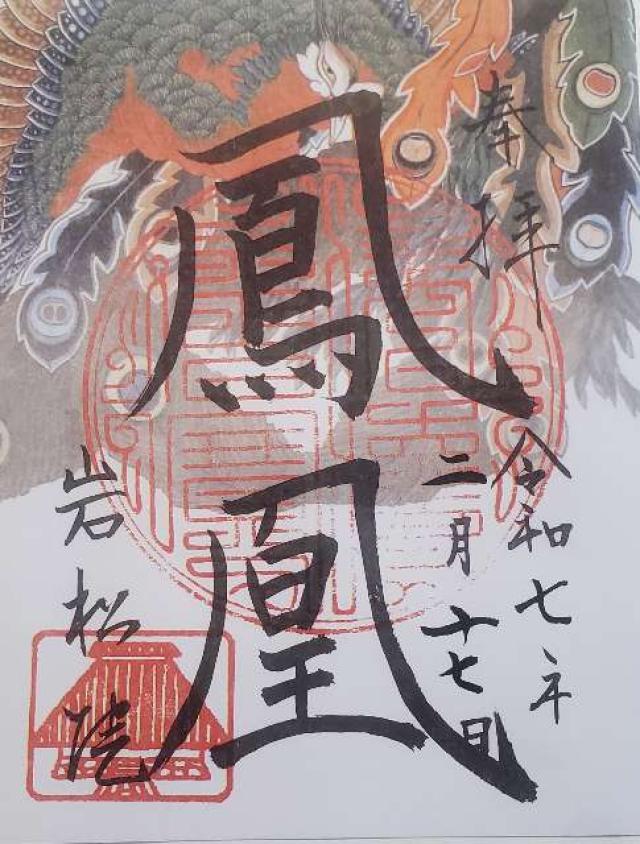 奉拝
令和七年
二月十七日
鳳凰
岩松院